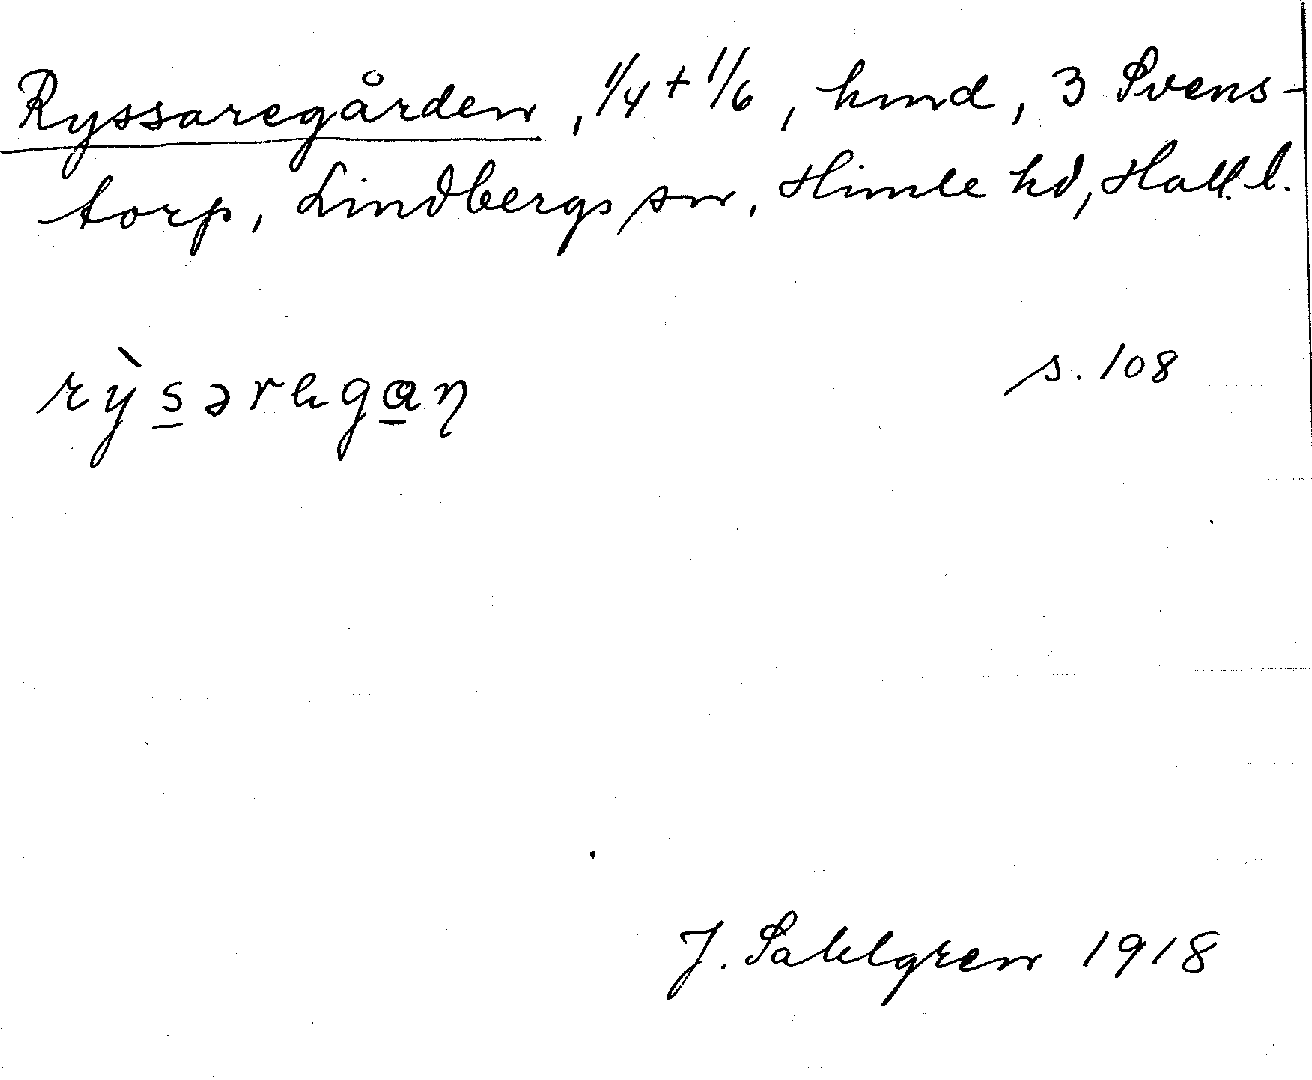 Ryssaregården, 1/4 + 1/6, hmd, 3 Svens-
torp, Lindbergs sn, Himle hd, Hall. l.
rỳsərəgan s. 108
J. Sahlgren 1918